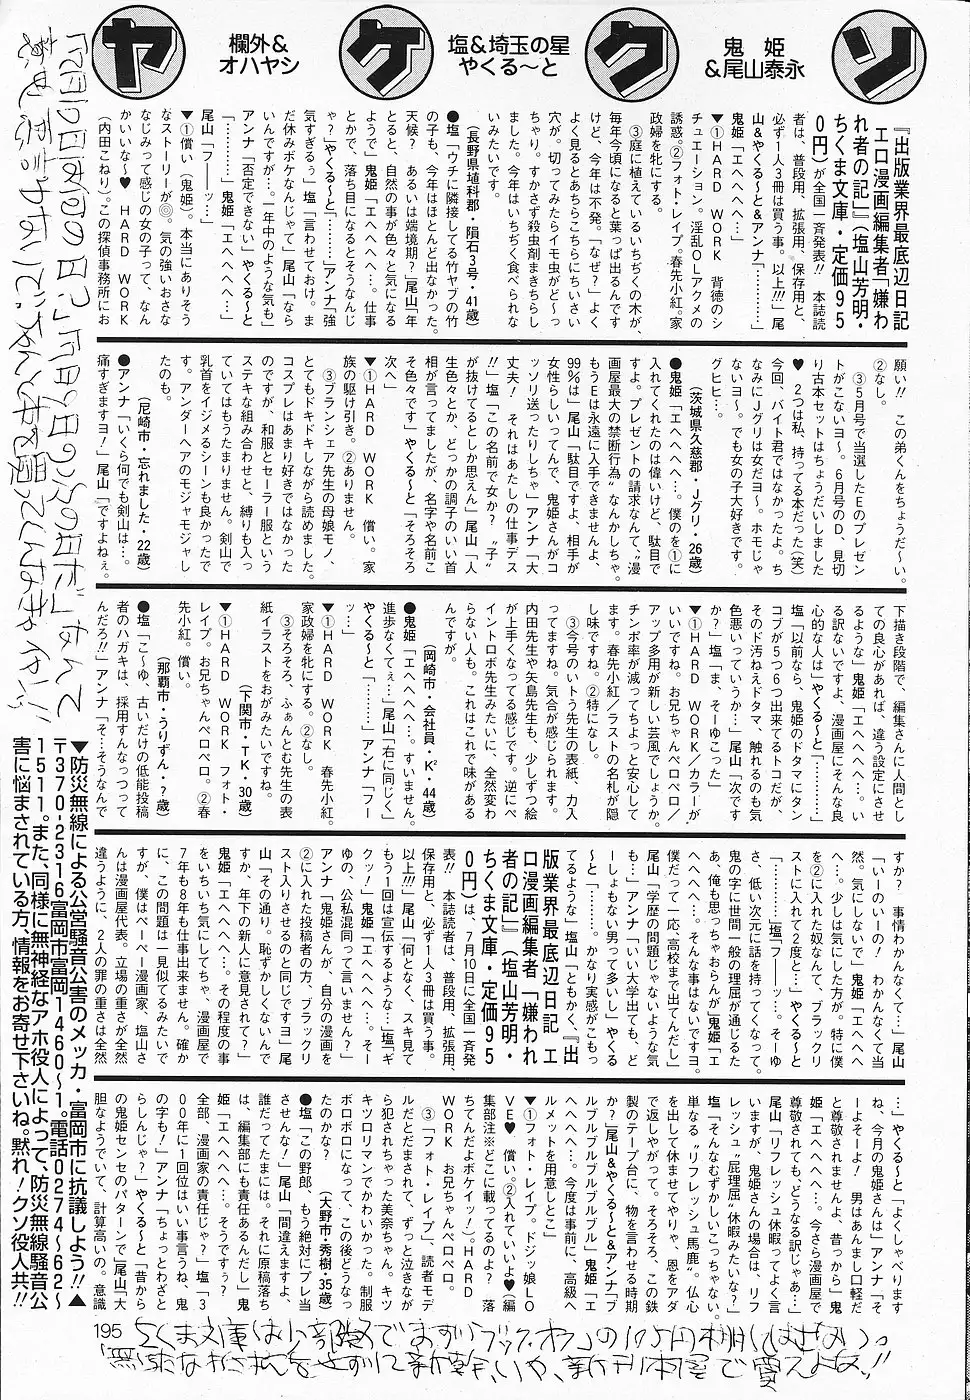 ソ
ク
ケ
ヤ
鬼姫
&尾山泰永
塩&埼玉の星
やくる〜と
欄外&
オハヤシ
『出版業界最底辺日記
エロ漫画編集者「嫌わ
れ者の記」』(塩山芳明・
ちくま文庫・定価95
0円)が全国一斉発売!! 本誌読
者は、普段用、拡張用、保存用と、
必ず1人3冊は買う事。以上!!」尾
山&やくる〜と&アンナ「…………」
鬼姫「エへへへへ…」
▼①HARD WORK 背徳のシ
チュエーション。淫乱OLアクメの
誘惑。②フォト・レイプ。春先小紅。家
政婦を牝にする。
③庭に植えているいちぢくの木が、
毎年今頃になると葉っぱ出るんです
けど、今年は不発。「なぜ?」よく
よく見るとあちこちに小さく開いた
穴が。切ってみたらイモ虫がど〜っ
ちゃり。すかさず殺虫剤まきちらし
ました。今年はいちぢく食べられな
いみたいです。
(長野県埴科郡・隕石3号・41歳)
●塩「ウチに隣接してる竹ヤブの竹
の子も、今年はほとんど出なかった。
天候? あるいは端境期?」尾山「年
とると、自然の事が色々と気になる
ようで」鬼姫「エへへへへ…。仕事
とかで、落ち目になるとそうなんじ
ゃ?」やくる〜と「………」アンナ「強
気すぎるぅ」塩「言わせておけ。ま
だ休みボケなんじゃて」尾山「なら
いんですが…。一年中のような気も」
アンナ「否定できない」やくる〜と
「…………」鬼姫「エへへへへ…」
尾山「フーーッ…」
▼①償い(鬼姫)。本当にありそう
なストーリーが◎。気の強いおさな
なじみって感じの女の子って、なん
かいいな〜♥ HARD WORK
(内田こねり)。この探偵事務所にお
願い!! この弟くんをちょうだ〜い。
②なし。
③5月号で当選したEのプレゼン
トがこないヨ〜。6月号のD、見切
り古本セットはちょうだいしました
♥ 2つは私、持ってる本だった(笑)
今回、バイト君ではなかったよ。ち
なみにJグリは女だヨ〜。ホモじゃ
ないヨ〜。でも女の子大好きです。
グヒヒ…。
(茨城県久慈郡・Jグリ・26歳)
●鬼姫「エへへへへ…。僕のを①に
入れてくれたのは偉いけど、駄目で
すよ。プレゼントの請求なんて、〝漫
画屋最大の禁断行為〟なんかしちゃ。
もうEは永遠に入手できませんよ、
99%は」尾山「駄目ですね、相手が
女性らしいってんで、鬼姫さんがコ
ッソリ送ったりしちゃ」アンナ「大
丈夫! それはあたしの仕事デス
!!」塩「この名前で女か? 〝子〟
が抜けてるとしか思えん」尾山「人
生色々とか、どっかの調子のいい首
相が言ってましたが、名字や名前こ
そ色々です」やくる〜と「そろそろ
次へ」
▼①HARD WORK 償い。家
族の駆け引き。②ありません。
③ブランシェア先生の母娘モノ、
とてもドキドキしながら読めました。
コスプレはあまり好きではなかった
のですが、和服とセーラー服という
ステキな組み合わせと、縛りも入っ
ていてはもうたまりません。剣山で
乳首をイジメるシーンも良かったで
す。アンダーヘアのモジャモジャし
たのも。
(尼崎市・忘れました・22歳)
●アンナ「いくら何でも剣山は…。
痛すぎますヨ!」尾山「ですよねぇ。
下描き段階で、編集さんに人間とし
ての良心があれば、違う設定にさせ
るような」鬼姫「エへへへへ…。い
る訳ないですよ、漫画屋にそんな良
心的な人は」やくる〜と「…………」
塩「以前なら、鬼姫のドタマにタン
コブが5つ6つ出来てるトコだが、
そのド汚ねえドタマ、触れるのも気
色悪いっていうか…」尾山「次です
か?」塩「ま、そーゆこった」
▼①HARD WORK/カラーが
いいですね。お兄ちゃんぺろぺろ/
アップ多用が新しい芸風でしょうか。
チンポ率が減ってちょっと安心して
ます。春先小紅/ラストの名札が隠
し味ですね。②特になし。
③今号のいトう先生の表紙、力入
ってますね。気合が感じられます。
内田先生や矢島先生も、少しずつ絵
が上手くなってる感じです。逆にべ
イントロボ先生みたいに、全然変わ
らない人も。これはこれで味がある
んですが。
(岡崎市・会社員・K²・44歳)
●鬼姫「エへへへへ…。すいません。
進歩なくてぇ…」尾山「右に同じく」
やくる〜と「………」アンナ「フー
ッ…」
▼①HARD WORK 春先小紅。
家政婦を牝にする。②なし。
③そろそろ、ふぁんとむ先生の表
紙イラストをおがみたいですね。
(下関市・TK・30歳)
▼①HARD WORK フォト・
レイプ。お兄ちゃんぺろぺろ。②春
先小紅。償い。
(那覇市・うりずん・?歳)
●塩「こーゆ、古いだけの低能投稿
者のハガキは、採用すんなっつって
んだろ!!」アンナ「そ…そうなんで
すか? 事情わかんなくて…」尾山
「いーのいーの! わかんなくて当
然。気にしないで」鬼姫「エへへへ
へ…。少しは気にした方が。特に僕
を②に入れた奴なんて、ブラックリ
ストに入れて2度と…」やくる〜と
「…………」塩「フーッ…。そーゆ
さ、低い次元に話を持ってくなって。
鬼の字に世間一般の理屈が通じるた
あ、俺も思っちゃおらんが」鬼姫「エ
へへへへ…。そんな事はないですヨ。
僕だって一応、高校まで出てんだし」
尾山「学歴の問題じゃないような気
も…」アンナ「いい大学出ても、ど
ーしょもない男って多いし」やくる
〜と「………。かなり実感がこもっ
てるような」塩山「ともかく、『出
版業界最底辺日記 エ
ロ漫画編集者「嫌われ
者の記」』(塩山芳明・
ちくま文庫・定価95
0円)は、7月10日に全国一斉発
表!! 本誌読者は、普段用、拡張用、
保存用と、必ず1人3冊は買う事。
以上!!」尾山「何となく、スキ見て
もう1回は宣伝するような…」塩「ギ
クッ!」鬼姫「エへへへへ…。そー
ゆの、公私混同って言いません?」
アンナ「鬼姫さんが、自分の漫画を
②に入れた投稿者の方、ブラックリ
スト入りさせるのと同じですヨ」尾
山「その通り。恥ずかしくないんで
すか、年下の新人に意見されて?」
鬼姫「エへへへへ…。その程度の事
をいちいち気にしてちゃ、漫画屋で
7年も8年も仕事出来ません。確か
に、この問題は一見似てるみたいで
すが、僕はぺーぺー漫画家、塩山さ
んは漫画屋代表。立場の重さが全然
違うように、2人の罪の重さは全然
…」やくる〜と「よくしゃべります
ね、今月の鬼姫さんは」アンナ「そ
ーよそーよ! 男はあんまし口軽だ
と尊敬されませんよ、昔っから」鬼
姫「エへへへへ…。今さら漫画屋で
尊敬されても、どうなる訳じゃあ…」
尾山「〝リフレッシュ休暇〟ってよく言
いますが、鬼姫さんの場合は、リフ
レッシュ〝屁理屈〟休暇みたいな?」
塩「そんなむずかしいこっちゃない。
単なる〝リフレッシュ馬鹿〟。仏心
を出して休ませてやりゃ、恩をアダ
で返しやがって。そろそろ、この鉄
製のテープ台に、物を言わせる時期
か?」尾山&やくる〜と&アンナ「ブ
ルブルブルブルブル」鬼姫「エ
へへへへ…。今度は事前に、高級へ
ルメットを用意しとこ」
▼①フォト・レイプ。ドジッ娘LO
VE♥ 償い。②入れていいよ♥(編
集部注※どこに載ってるのよ? 落
ちてんだよボケイッ!)。HARD
WORK お兄ちゃんぺろぺろ。
③「フォト・レイプ」、読者モデ
ルだとだまされて、ずっと泣きなが
ボロボロになって、この後どうなっ
たのかな?
(大野市・秀樹・35歳)
●塩「この野郎、もう絶対にプレ当
させないぞ!」尾山「間違えますよ、
誰だってたまには。それに原稿落ち
は、編集部にも責任あるんでし」鬼
姫「エへへへへ…。そうですぅ?
全部、漫画家の責任じゃ?」塩「3
00年に1回位はいい事いうな、鬼
の字も!」アンナ「ちょっとわざと
らしんじゃ?」やくる〜と「昔から
の鬼姫センセのパターンで」尾山「大
胆なようでいて、計算高いの。意識
▼防災無線による公営騒音公害のメッカ・富岡市に抗議しよう!!▲
〒370-2316富岡市富岡1460〜1。電話0274〜62〜
1511。また、同様に無神経なアホ役人によって、防災無線騒音公
害に悩まされている方、情報をお寄せ下さいね。黙れ!クソ役人共!!
195